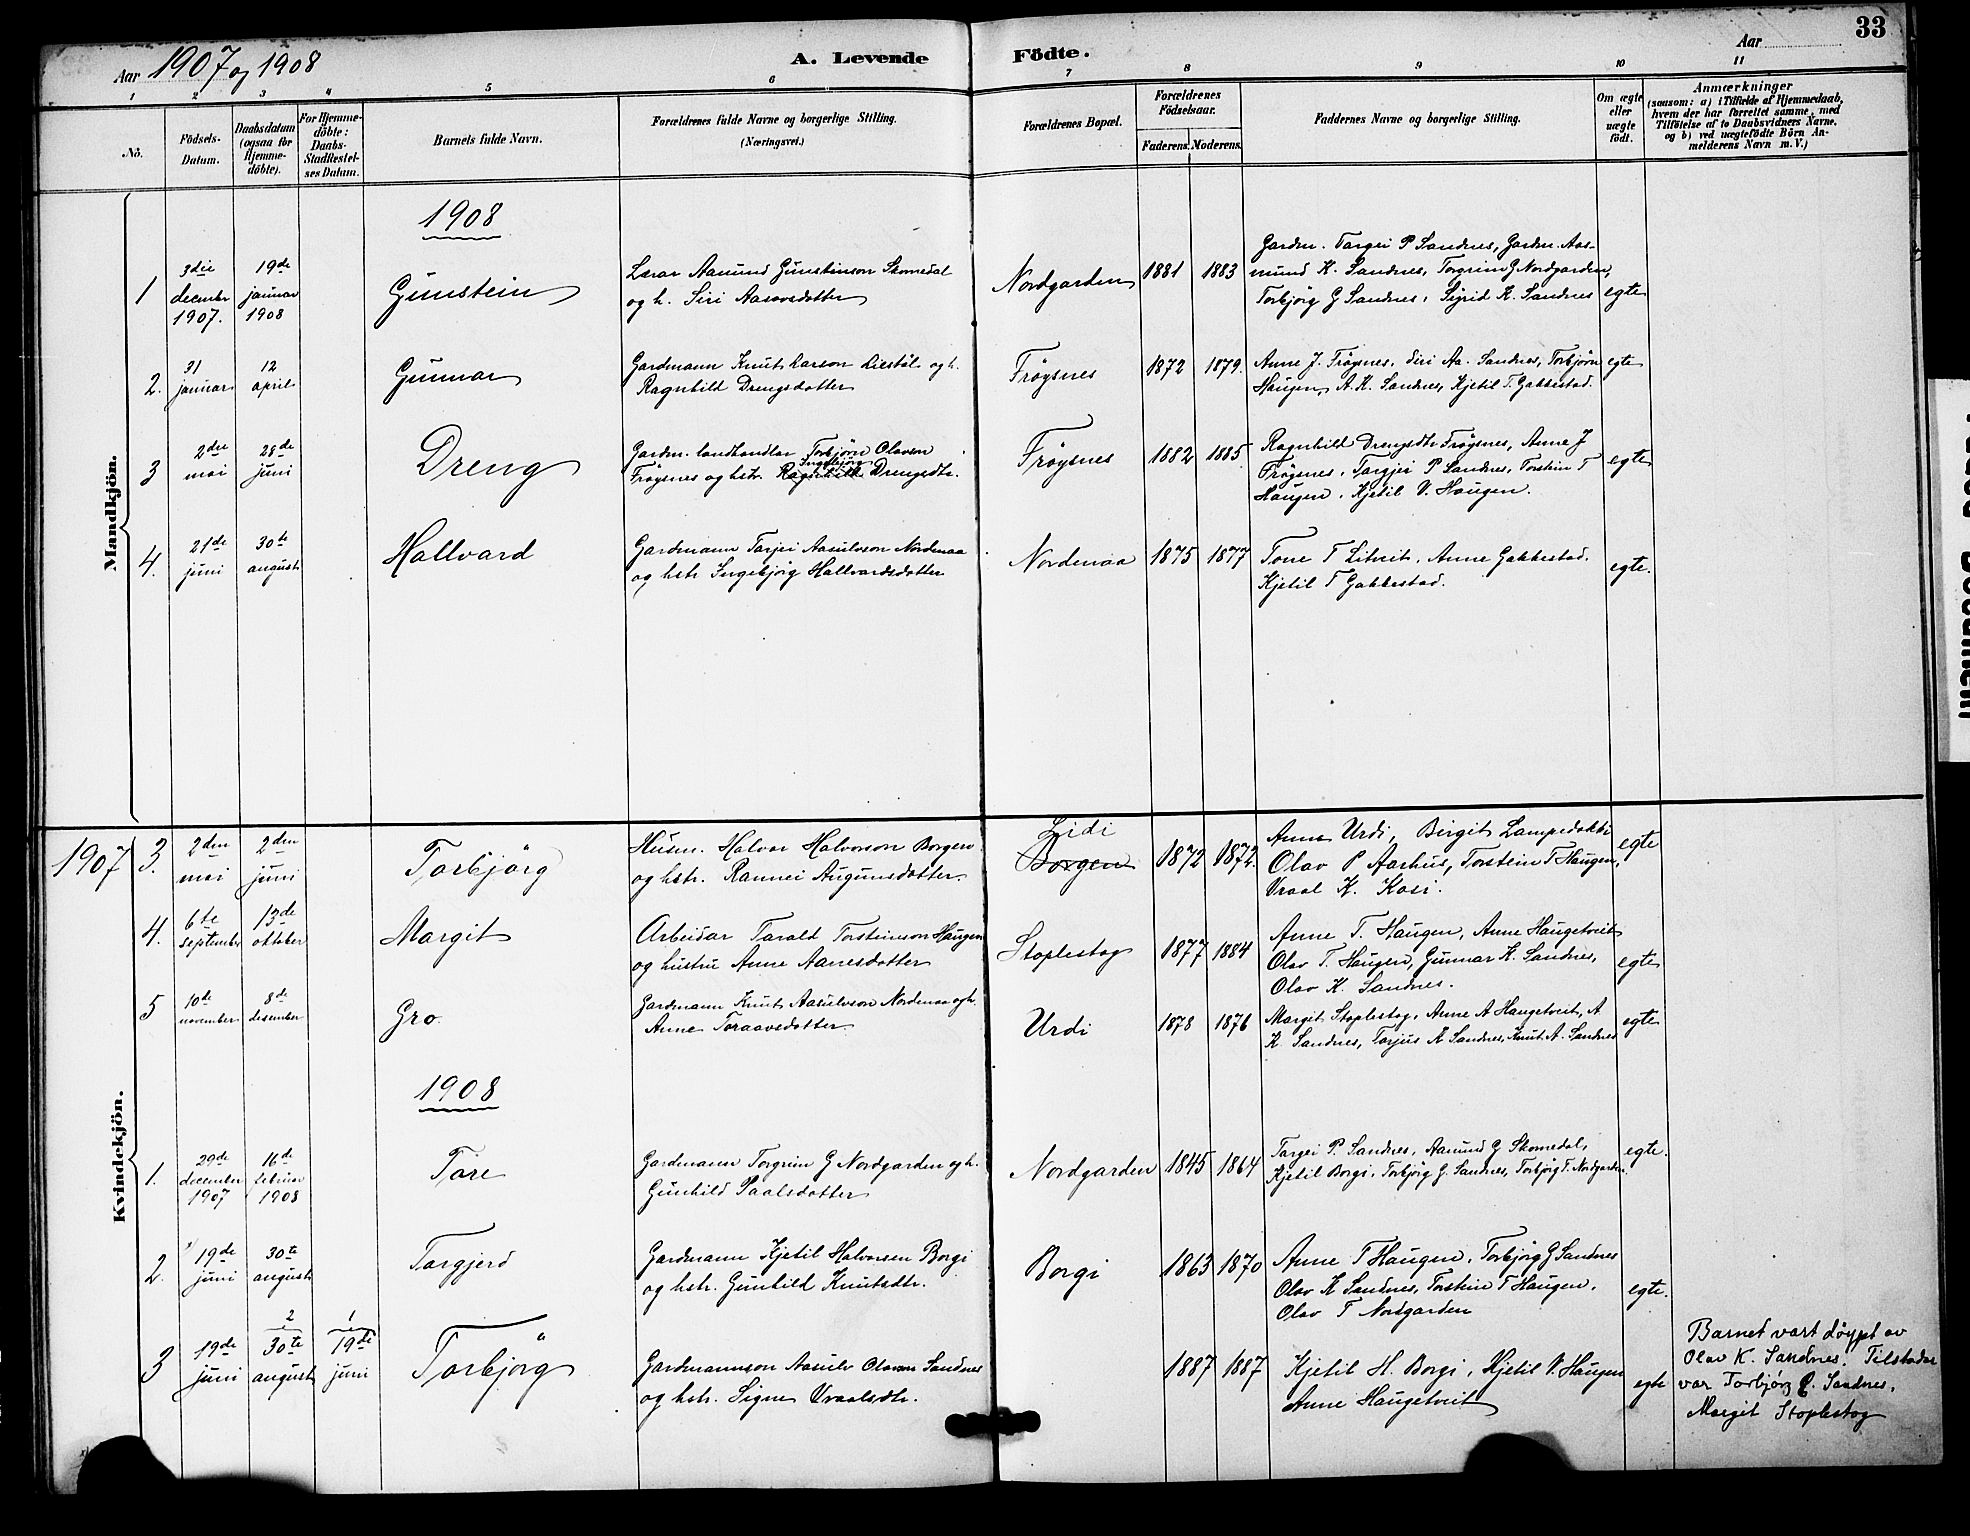 33
Aar 1907 og 1908
A. Levende Födte.
Aar
1 2 3 4 5 6 7 8 9 10 11
No.
Födsels-
Datum.
Daabsdatum
(ogsaa for
Hjemme-
döbte).
For Hjemme-
döbte:
Daabs-
Stadfæstel-
ses Datum.
Barnets fulde Navn.
Forældrenes fulde Navne og borgerlige Stilling.
(Næringsvei.)
Forældrenes Bopæl.
Forældrenes
Födselsaar.
Faderens. Moderens.
Faddernes Navne og borgerlige Stilling.
Om ægte
eller
uægte
födt.
Anmærkninger
(saasom: a) i Tilfælde af Hjemmedaab,
hvem der har forrettet samme, med
Tilföielse af to Daabsvidners Navne,
og b) ved uægtefödte Börn An-
melderens Navn m. V.)
Mandkjön.
1908
1
3die
december
1907.
19de
januar
1908
Gunstein
Lærar Aamund Gunsteinson Skomedal
og h. Siri Aasovsdotter
Nordgarden
1881 1883
Gardm. Targei P Sandnes, Gardm. Aas-
mund K. Sandnes, Torgrim G Nordgarden,
Torbjörg G Sandnes, Sigrid K. Sandnes
egte
2.
31
januar
12
april
Gunnar
Gardmann Knut Larson Liestöl og h.
Ragnhild Drengsdotter
Fröysnes
1872 1879.
Anne J. Fröysnes, Siri Aa. Sandnes, Torbjörn
Haugen, A. K. Sandnes, Kjetil T. Gakkestad.
egte
3
2den
mai
28de
juni
Dreng
Gardm. landhandlar Torbjörn Olavson
Ingebjörg
Fröysnes og hstr. Ragnhild Drengsdtr.
Fröysnes
1882 1885
Ragnhild Drengsdtr Fröysnes, Anne J
Fröysnes, Targjei P Sandnes, Torstein T
Haugen, Kjetil V. Haugen.
egte
4.
21de
juni
30te
august
Hallvard
Gardmann Tarjei Aasulvson Nordenaa
og hstr Ingebjörg Hallvardsdotter
Nordenaa
1875 1877
Tone T Litveit, Anne Gakkestad.
Kjetil T Gakkestad.
egte.
Kvindekjön.
1907
3.
2den
mai
2den
juni
Torbjörg
Husm. Halvor Halvorson Borgen
og hstr. Rannei Augunsdotter.
Lidi
Borgen
1872 1872.
Anne Urdi, Birgit Lampedokki
Olav P Aarhus, Torstein T Haugen,
Vraal K. Kosi.
egte
4.
6te
september
13de
oktober
Margit
Arbeidar Tarald Torsteinson Haugen
og hustru Anne Aanesdotter
Stoplestog
1877 1884
Anne T. Haugen, Anne Haugetveit
Olav T. Haugen, Gunnar K. Sandnes,
Olav K. Sandnes.
egte
5
10de
november
8de
desember
Gro
Gardmann Knut Aasulvson Nordenaa og h.
Anne Toraavsdotter
Urdi
1878 1876
Margit Stoplestog, Anne A Haugetveit, A
K. Sandnes, Tarjus K Sandnes, Knut A. Sandnes
egte
1908
1.
29de
december
1907
16de
februar
1908
Tore
Gardmann Torgrim G Nordgarden og h.
Gunhild Paalsdotter
Nordgarden
1845 1864
Targei P. Sandnes, Aamund G Skomedal,
Kjetil Borgi, Torbjörg G. Sandnes, Torbjörg T. Nordgarden.
egte.
2.
19de
juni
30te
august
Targjerd
Gardmann Kjetil Halvorsen Borgi
og hstr. Gunhild Knutsdtr.
Borgi
1863 1870
Anne T Haugen, Torbjörg G Sandnes
Olav K Sandnes, Torstein T Haugen,
Olav T Nordgarden
egte.
3
19de
juni
2
30te
august
1
19de
juni
Torbjörg
Gardmannson Aasulv Olavson Sandnes
og hstr. Signe Vraalsdtr.
1887 1887
Kjetil H. Borgi, Kjetil V. Haugen
Anne Haugetveit
egte
Barnet vart döypt av
Olav K. Sandnes. Tilstades
var Torbjörg G. Sandnes,
Margit Stoplestog